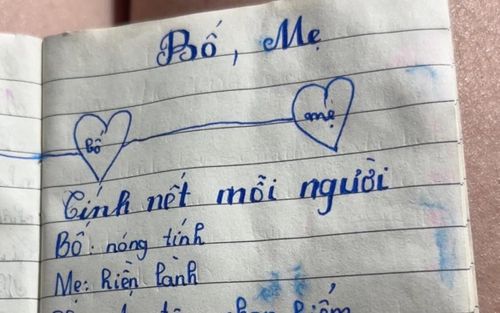 Bố, Mẹ
bố mẹ
Tính nết mỗi người
Bố: nóng tính
Mẹ: hiền lành